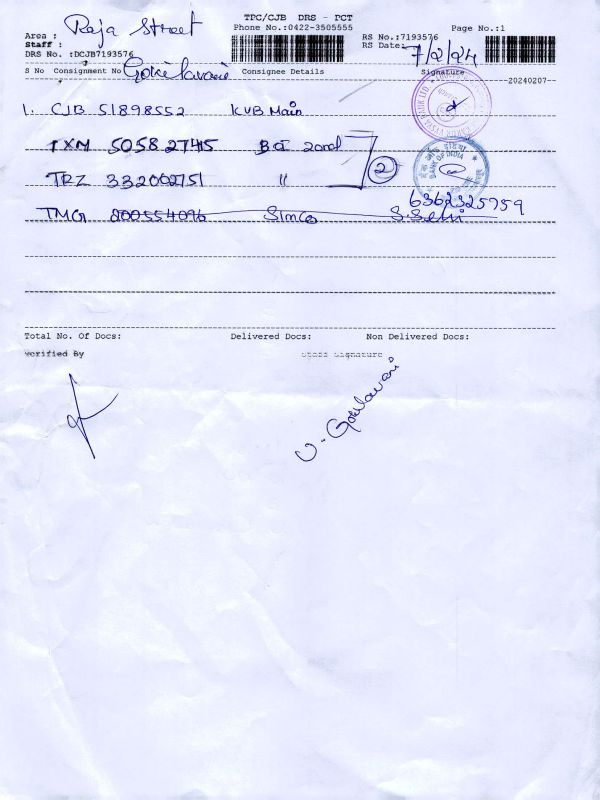 TPC/CJB DRS - PCT
Area : Raja Street
Phone No.:0422-3505555
Page No.:1
Staff :
RS No.:7193576
DRS No. :DCJB7193576
RS Date: 7/2/24
S No Consignment No Gokilavani Consignee Details Signature
20240207
1. CJB 51898552 KVB Main
TXM 50582745 BOI zonal
TRZ 332002751 " 2
BANK OF INDIA
6362325759
TMG 200554096 Simco S.Selvi
Total No. Of Docs: Delivered Docs: Non Delivered Docs:
Verified By Staff Signature
V. Gokilavani